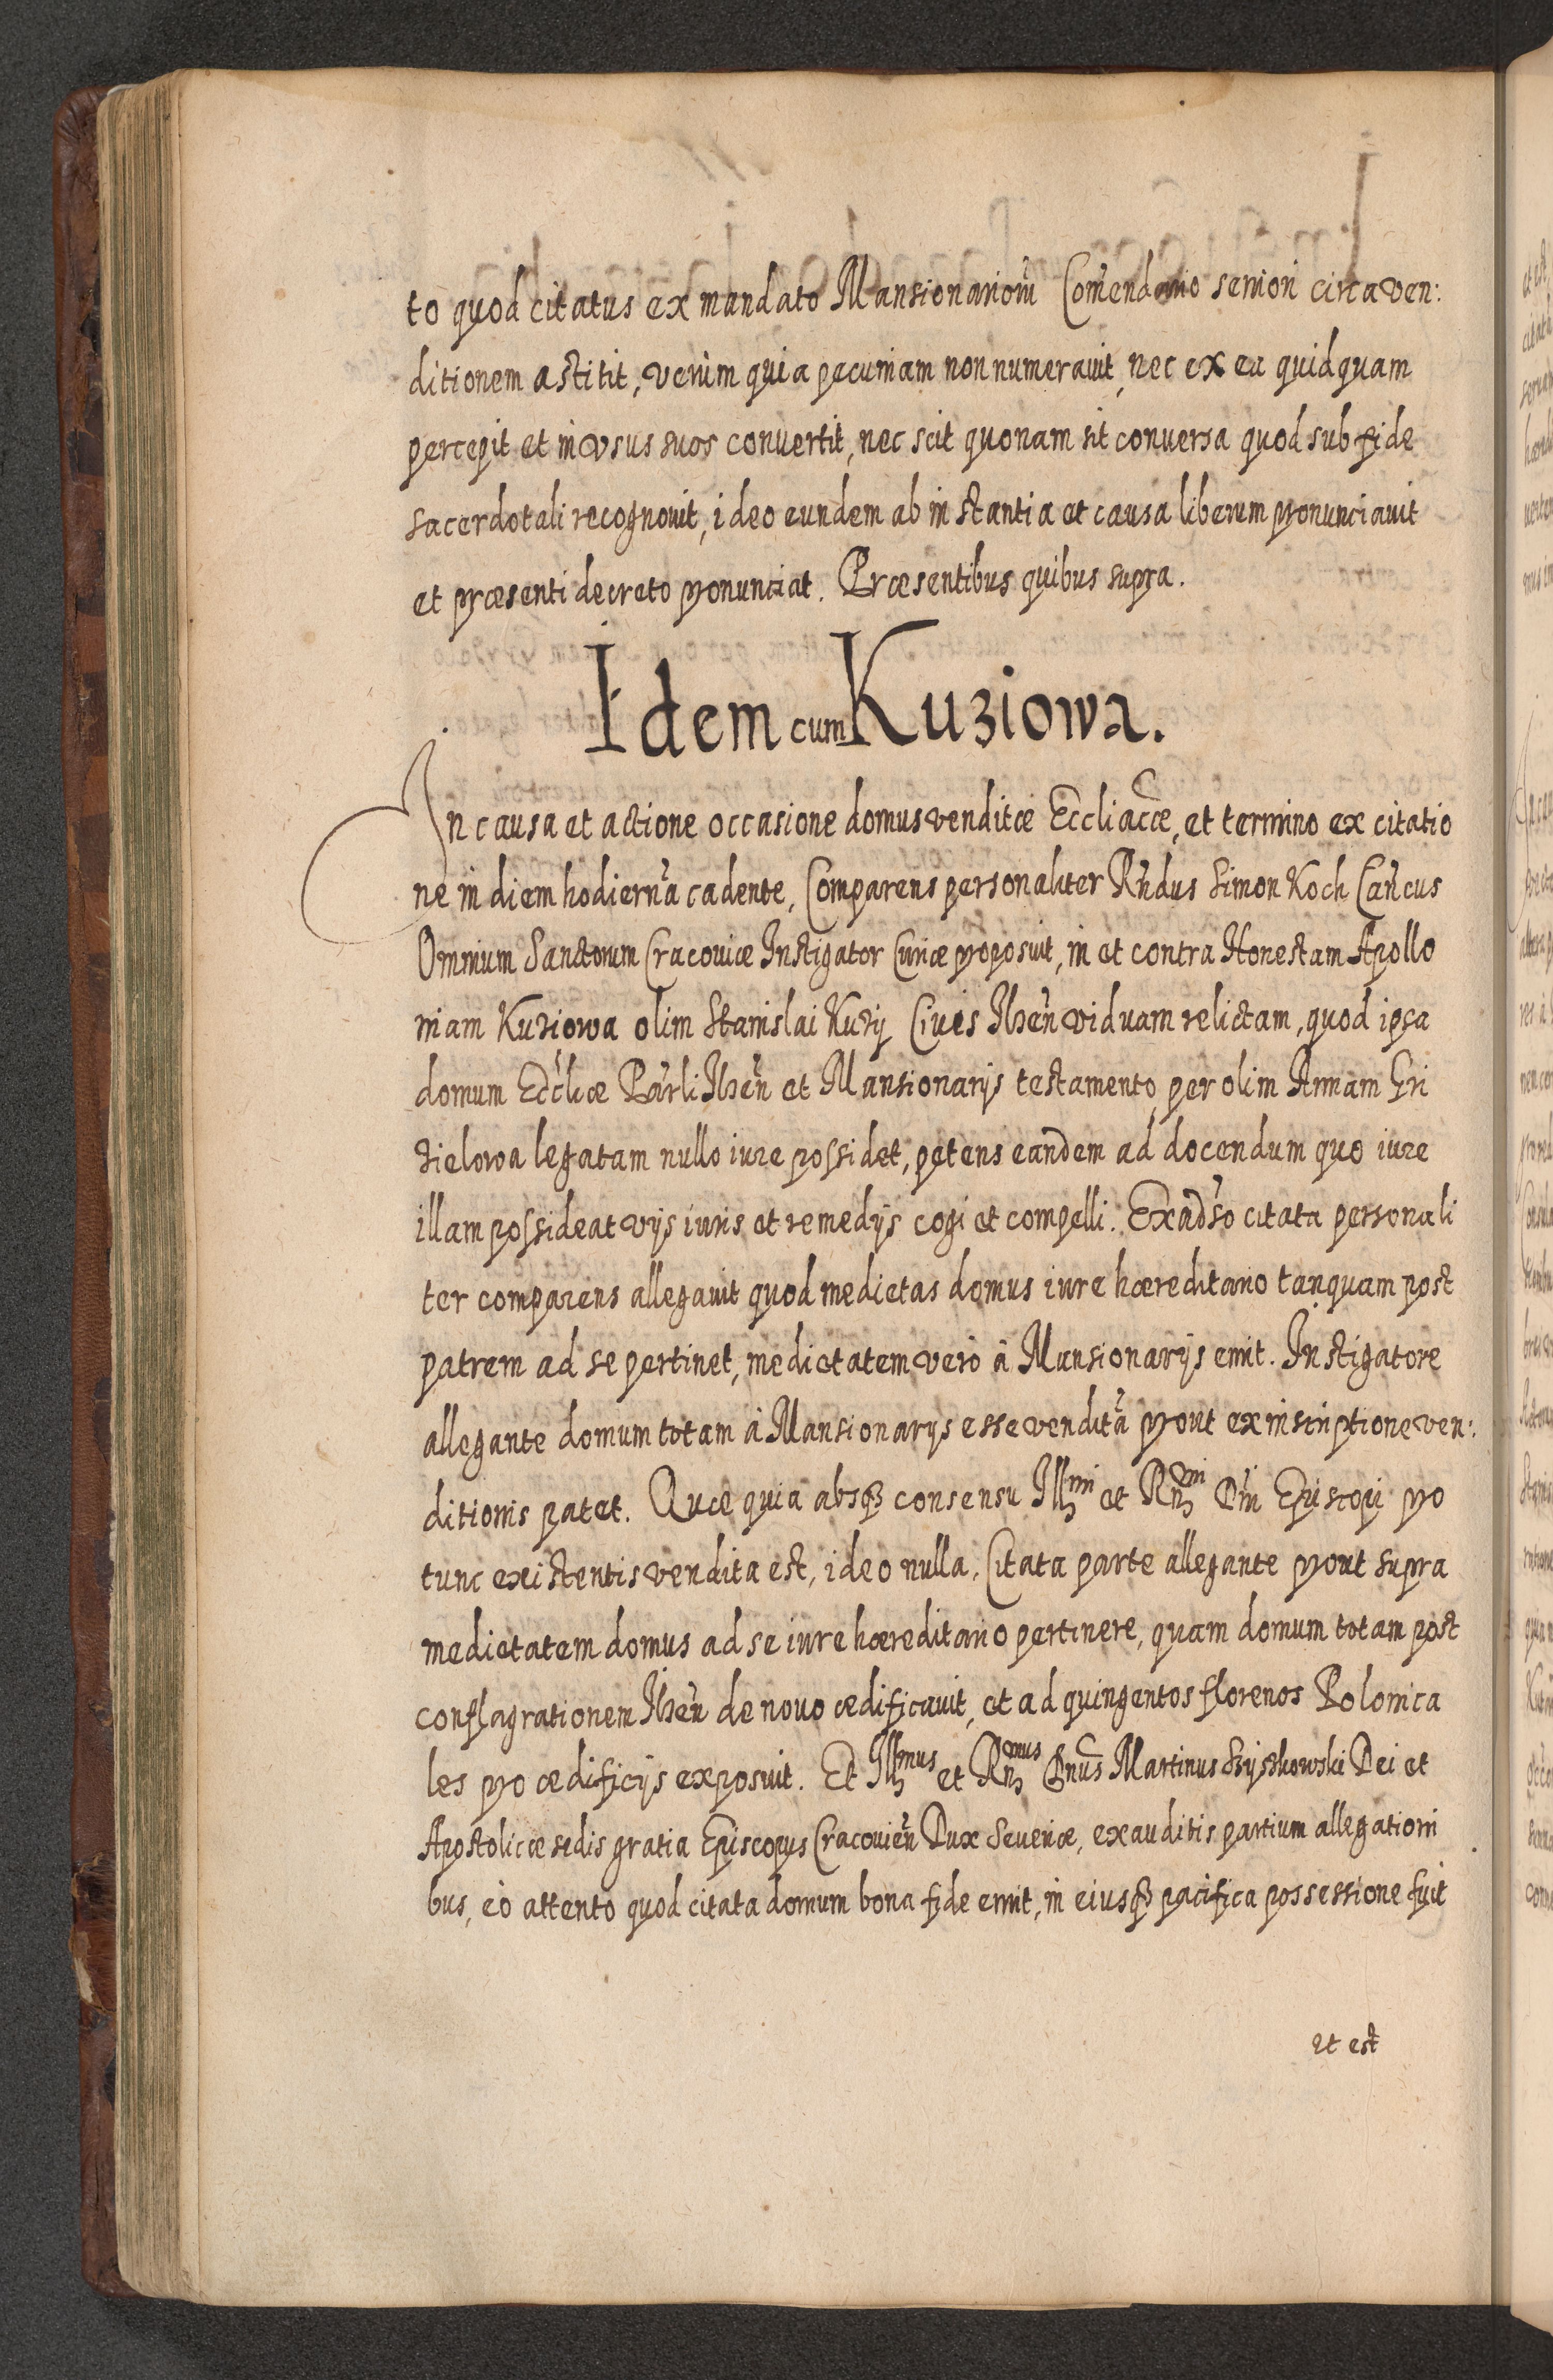 to quod citatus ex mandato Mansionarioru᷆ Com̃endario seniori circa ven:
ditionem astitit, verùm quia pecuniam non numerauit, nec ex ea quidquam
percepit et in vsus suos conuertit, nec scit quonam sit conuersa quod sub fide
sacerdotali recognouit, ideo eundem ab instantia et causa liberum pronunciauit
et præsenti decreto pronunciat. Præsentibus quibus supra.
Idem cum Kuziowa.
In causa et actione occasione domus venditæ Eccliacæ, et termino ex citatio
ne in diem hodiernã cadente, Comparens personaliter Rñdus Simon Koch Cañcus
Omnium Sanctorum Cracouiæ Instigator Curiæ proposuit, in et contra Honestam Apollo
niam Kuziowa olim Stanislai Kuzij Ciuis Ilzeñ viduam relictam, quod ipsa
domum Eccliæ Parli Ilzeñ et Mansionarijs testamento per olim Annam Gri
zielowa legatam nullo iure possidet, petens eandem ad docendum quo iure
illam possideat vijs iuris et remedijs cogi et compelli. Ex adso citata personali
ter comparens allegauit quod medietas domus iure hæreditario tanquam post
patrem ad se pertinet, medietatem verò à Mansionarijs emit. Instigatore
allegante domum totam à Mansionarijs esse venditã prout ex inscriptione ven:
ditionis patet. Quæ quia absq₃ consensu Illmi et Rñmi Dñi Episcopi pro
tunc existentis vendita est, ideo nulla, Citata parte allegante prout supra
medietatem domus ad se iure hæreditario pertinere, quam domum totam post
conflagrationem Ilzeñ de nouo ædificauit, et ad quingentos florenos Polonica
les pro ædificijs exposuit. Et Illmus et Rñmus Dñus Martinus Szyszkowski Dei et
Apostolicæ sedis gratia Episcopus Cracouieñ Dux Seueriæ, exauditis partium allegationi
bus, eò attento quod citata domum bona fide emit, in eiusq₃ pacifica possessione fuit
et est